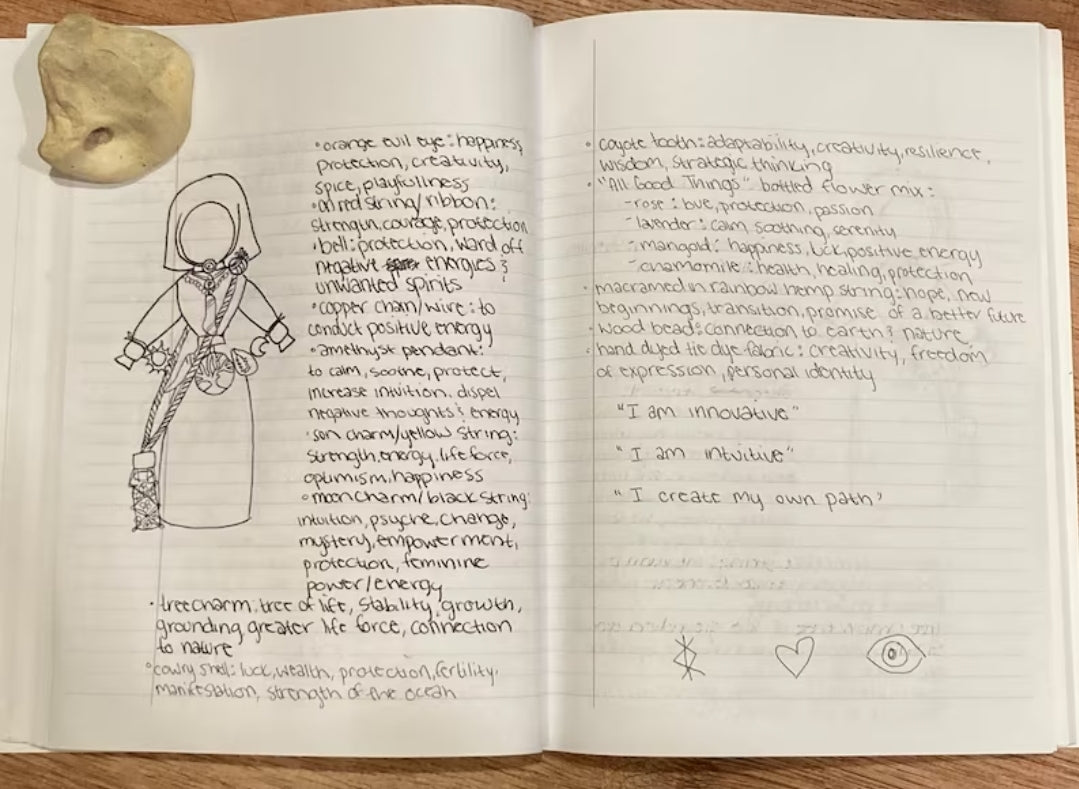 • orange evil eye: happiness,
protection, creativity,
spice, playfullness
• on red string/ribbon:
strength, courage, protection
• bell: protection, ward off
negative energies &
unwanted spirits
• copper chain/wire: to
conduct positive energy
• amethyst pendant:
to calm, soothe, protect,
increase intuition, dispel
negative thoughts & energy
• sun charm/yellow string:
strength, energy, life force,
optimism, happiness
• moon charm/black string:
intuition, psyche, change,
mystery, empowerment,
protection, feminine
power/energy
• tree charm: tree of life, stability, growth,
grounding greater life force, connection
to nature
• cowry shell: luck, wealth, protection, fertility,
manifestation, strength of the ocean
• coyote tooth: adaptability, creativity, resilience,
wisdom, strategic thinking
• "All Good Things" bottled flower mix:
- rose: love, protection, passion
- lavender: calm, soothing, serenity
- marigold: happiness, luck, positive energy
- chamomile: health, healing, protection
• macramed in rainbow hemp string: hope, new
beginnings, transition, promise of a better future
• wood beads: connection to earth & nature
• hand dyed tie dye fabric: creativity, freedom
of expression, personal identity
"I am innovative"
"I am intuitive"
"I create my own path"